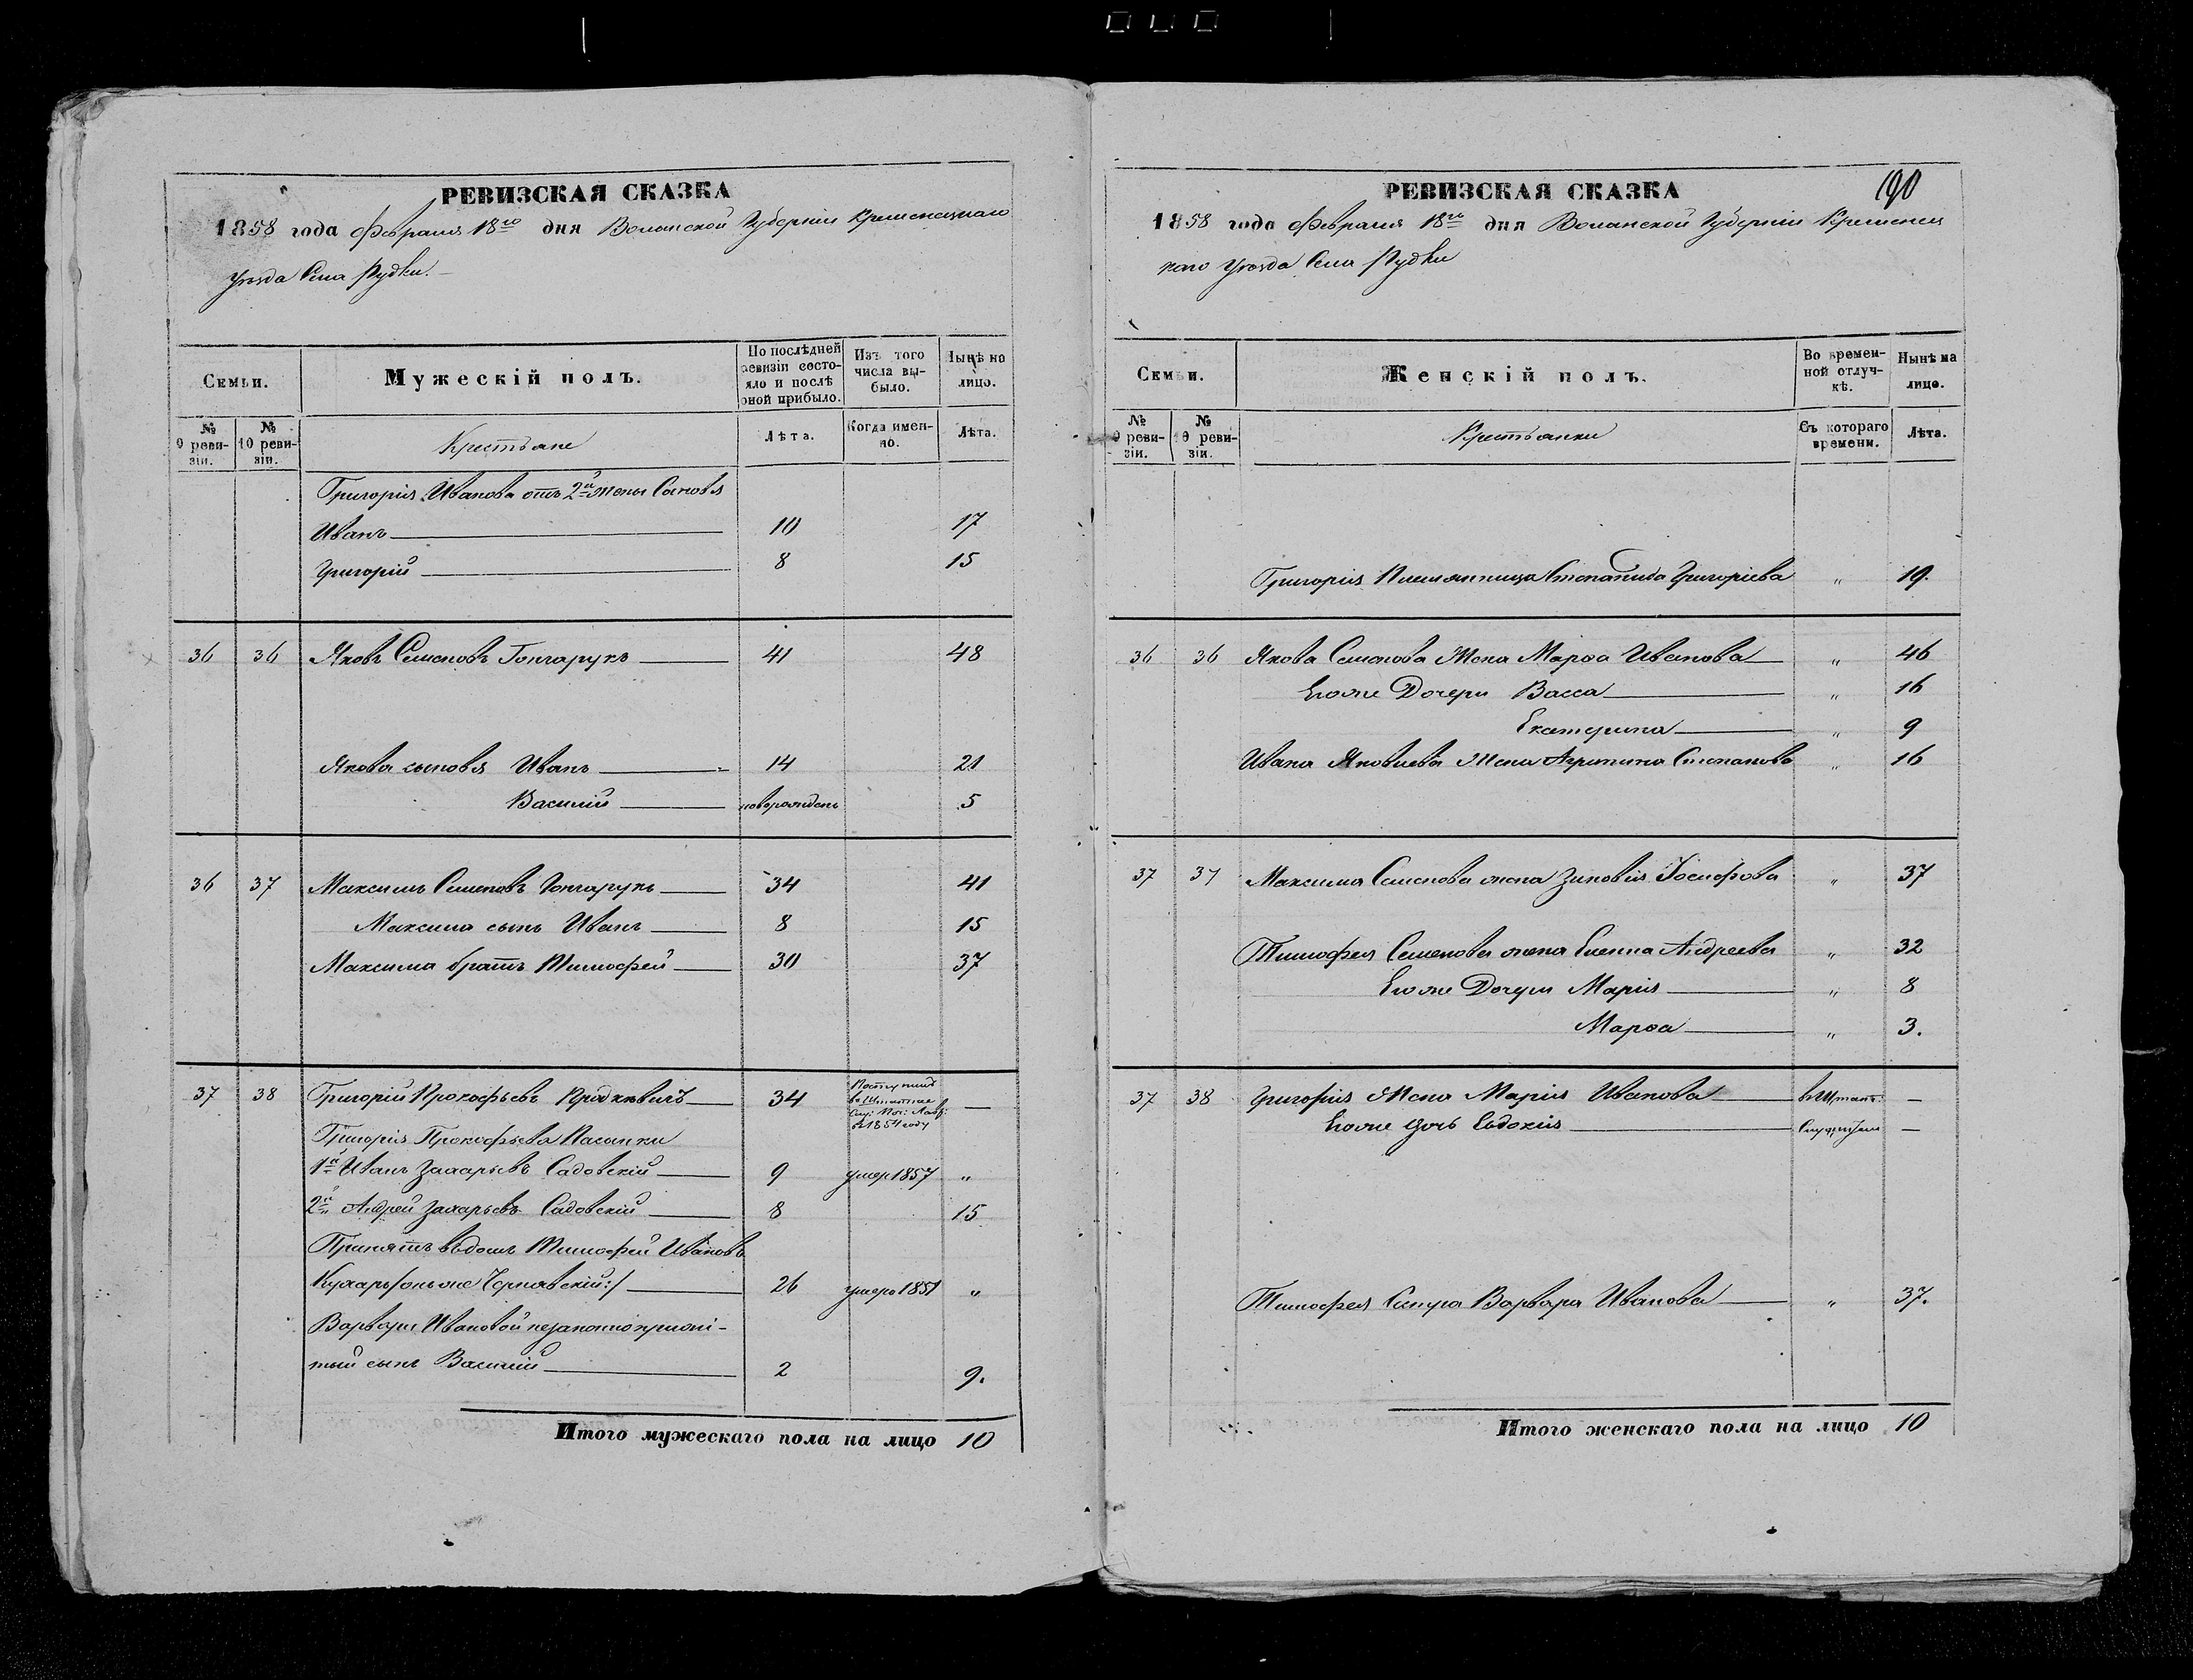 РЕВИЗСКАЯ СКАЗКА
1858 года Февраля 18го дня Волынской Губерніи Кременецкаго
Уѣзда Села Рудки.
Семьи.
Мужескій полъ.
По послѣдней ревизіи состояло и послѣ оной прибыло.
Изъ того числа выбыло.
Нынѣ на лицо.
№ 9 ревизіи.
№ 10 ревизіи.
Крестьяне
Лѣта.
Когда именно.
Лѣта.
Григорія Иванова отъ 2й Жены Сыновья
Иванъ 10 17
Григорій 8 15
36 36 Яковъ Семеновъ Гончарукъ 41 48
Якова сыновья Иванъ 14 21
Василій новорожденъ 5
36 37 Максимъ Семеновъ Гончарукъ 34 41
Максима сынъ Иванъ 8 15
Максима братъ Тимофей 30 37
37 38 Григорій Прокофьевъ 34 Поступилъ —
въ Штатные
въ 1854 году
Григорія Прокофьева Пасынки
1й Иванъ Захарьевъ Садовскій 9 умер 1857 "
2й Андрей Захарьевъ Садовскій 8 15
Принятъ въ домъ Тимофей Ивановъ
Кухарь /онъ же Чернявскій:/ 26 умеръ 1851 "
Варвары Ивановой незаконноприжи-
тый сынъ Василій 2 9.
Итого мужескаго пола на лицо 10
190
РЕВИЗСКАЯ СКАЗКА
1858 года Февраля 18го дня Волынской Губерніи Кременец
каго Уѣзда Села Рудки
Семьи.
Женскій полъ.
Во временной отлучкѣ.
Нынѣ на лицо.
№ 9 ревизіи.
№ 10 ревизіи.
Крестьянки
Съ котораго времени.
Лѣта.
Григорія Племянница Степанида Григоріева " 19.
36 36 Якова Семенова Жена Марѳа Иванова " 46
Егоже Дочери Васса " 16
Екатерина " 9
Ивана Яковлева Жена Агрипина Степанова " 16
37 37 Максима Семенова жена Зиновія Іосифова " 37
Тимофея Семенова жена Елена Андреева " 32
Егоже Дочери Марія " 8
Марѳа " 3.
37 38 Григорія Жена Марія Иванова въ Штат: —
Егоже дочь Евдокія —
Тимофея Сестра Варвара Иванова " 37.
Итого женскаго пола на лицо 10